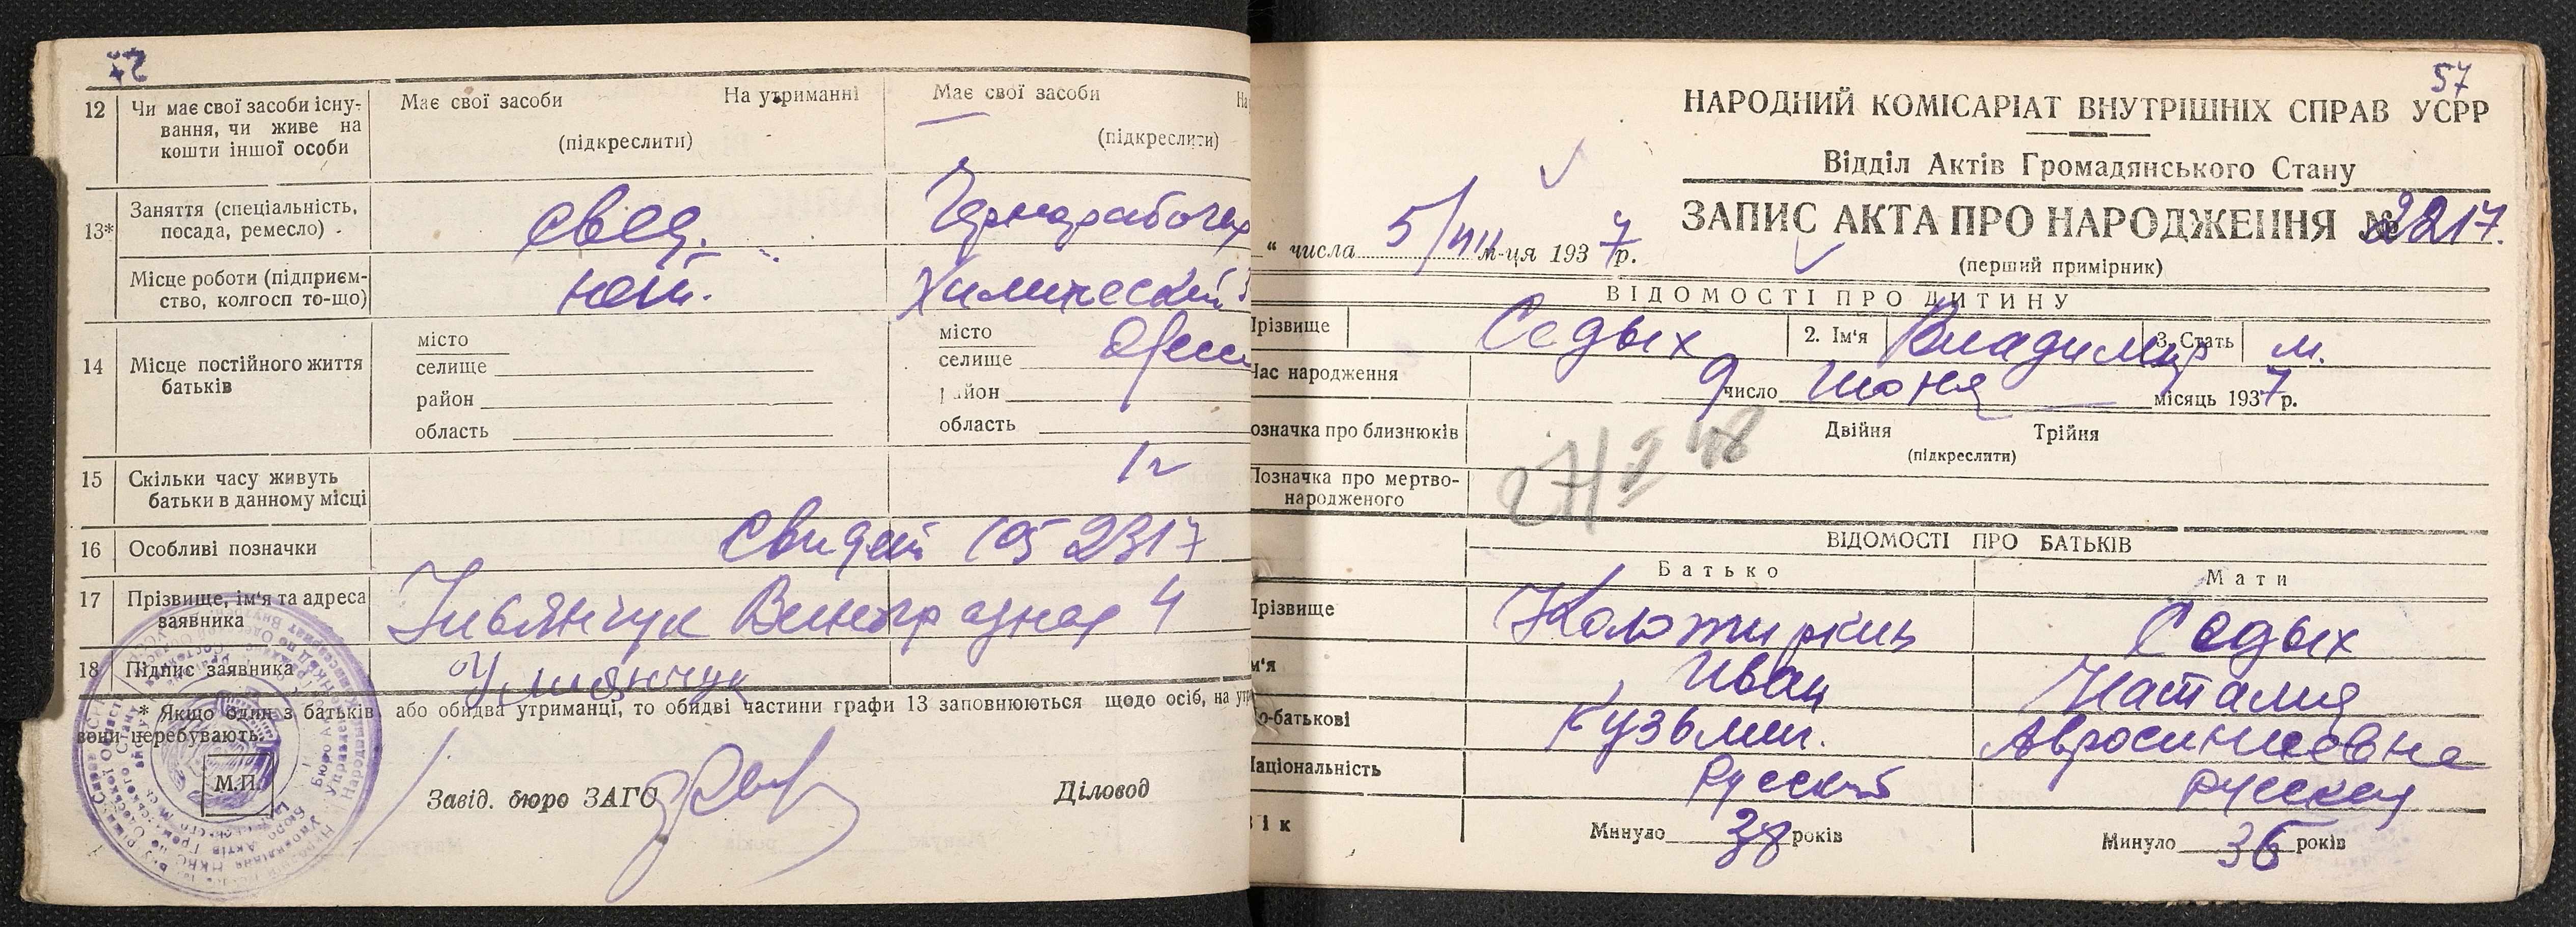 12 Чи має свої засоби існу-
вання, чи живе на
кошти іншої особи
Має свої засоби На утриманні
(підкреслити)
Має свої засоби На
(підкреслити)
13* Заняття (спеціальність,
посада, ремесло)
свед.
Чернорабочая
Місце роботи (підприєм-
ство, колгосп то-що)
нет.
Химический
14 Місце постійного життя
батьків
місто
селище
район
область
місто
селище
район
область
Одесса
15 Скільки часу живуть
батьки в данному місці
1 г
16 Особливі позначки
Свидет 105 2317
17 Прізвище, ім'я та адреса
заявника
Виноградная 4
18 Підпис заявника
* Якщо один з батьків або обидва утриманці, то обидві частини графи 13 заповнюються щодо осіб, на утр
вони перебувають.
М.П.
Завід. бюро ЗАГС Діловод
57
НАРОДНИЙ КОМІСАРІАТ ВНУТРІШНІХ СПРАВ УСРР
Відділ Актів Громадянського Стану
ЗАПИС АКТА ПРО НАРОДЖЕННЯ № 2217.
" числа 5/VII м-ця 1937 р.
(перший примірник)
ВІДОМОСТІ ПРО ДИТИНУ
Прізвище Седых 2. Ім'я Владимир 3. Стать м.
Час народження 9 число июня місяць 1937 р.
означка про близнюків Двійня Трійня
(підкреслити)
Позначка про мертво-
народженого
ВІДОМОСТІ ПРО БАТЬКІВ
Батько Мати
Прізвище Седых
м'я Иван Наталия
о-батькові Кузьмич. Авросиниевна
Національність Русский русская
Вік Минуло 38 років Минуло 36 років